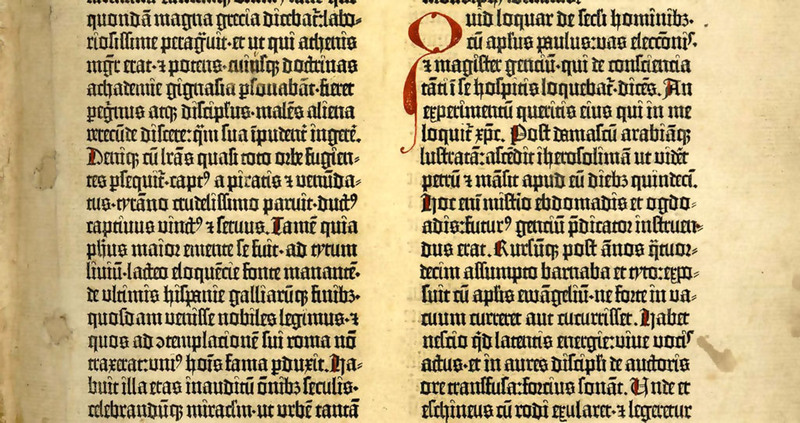 quondā magna grecia dicebat̄: labo-
riosissime peragͣuit· et ut qui athenis
mgr̄ erat· ⁊ potens· cuiusq; doctrinas
achademie gignasia ꝑsonabāt· fieret
peg̍nus atq; discipĺus· malēs aliena
verecūde discere: q̄m sua īpudent̄ ingerē.
Deniq; cū lr̄as quasi toto orbe fugien-
tes ꝑsequit̄· captꝰ a piratis ⁊ venūda-
tus· tyrāno crudelissimo paruit· ductꝰ
captiuus vinctꝰ ⁊ seruus. Tamē quia
ph̄us maior emente se fuit· ad tytum
liuiū· lacteo eloquēcie fonte manantē·
de vltimis hispanie galliarūq; finibꝫ·
quosdam venisse nobiles legimus· ⁊
quos ad ↄtemplacionē sui roma nō
traxerat: vniꝰ hoīs fama ꝑduxit. Ha-
buit illa etas inauditū ōnibꝫ seculis·
celebrandūq; miraclm̄· ut urbē tantā
Quid loquar de secl̄i hominibꝫ·
cū apl̄us paulus: vas elecc̄onis·
⁊ magister genciū· qui de consciencia
tāti ī se hospitis loquebat̄· dicēs. An
experimentū queritis eius qui in me
loquit̄ xp̄c. Post damascū arabiāq;
lustratā: ascēdit iherosolimā ut vidēt
petrū ⁊ māsit apud eū diebꝫ quindeci.
Hoc enī mistīo ebdomadis et ogdo-
adis: futurꝰ genciū p̄dicator instruen-
dus erat. Rursūq; post ānos q̄tuor-
decim assumpto barnaba et tyto: expo-
suit cū apl̄is ewāgeliū· ne forte in va-
cuum curreret aut cucurrisset. Habet
nescio q̄d latentis energie: viue vocis
actus· et in aures discipl̄i de auctoris
ore transfusa: forcius sonāt. Unde et
eschineus cū rodi exularet· ⁊ legeretur